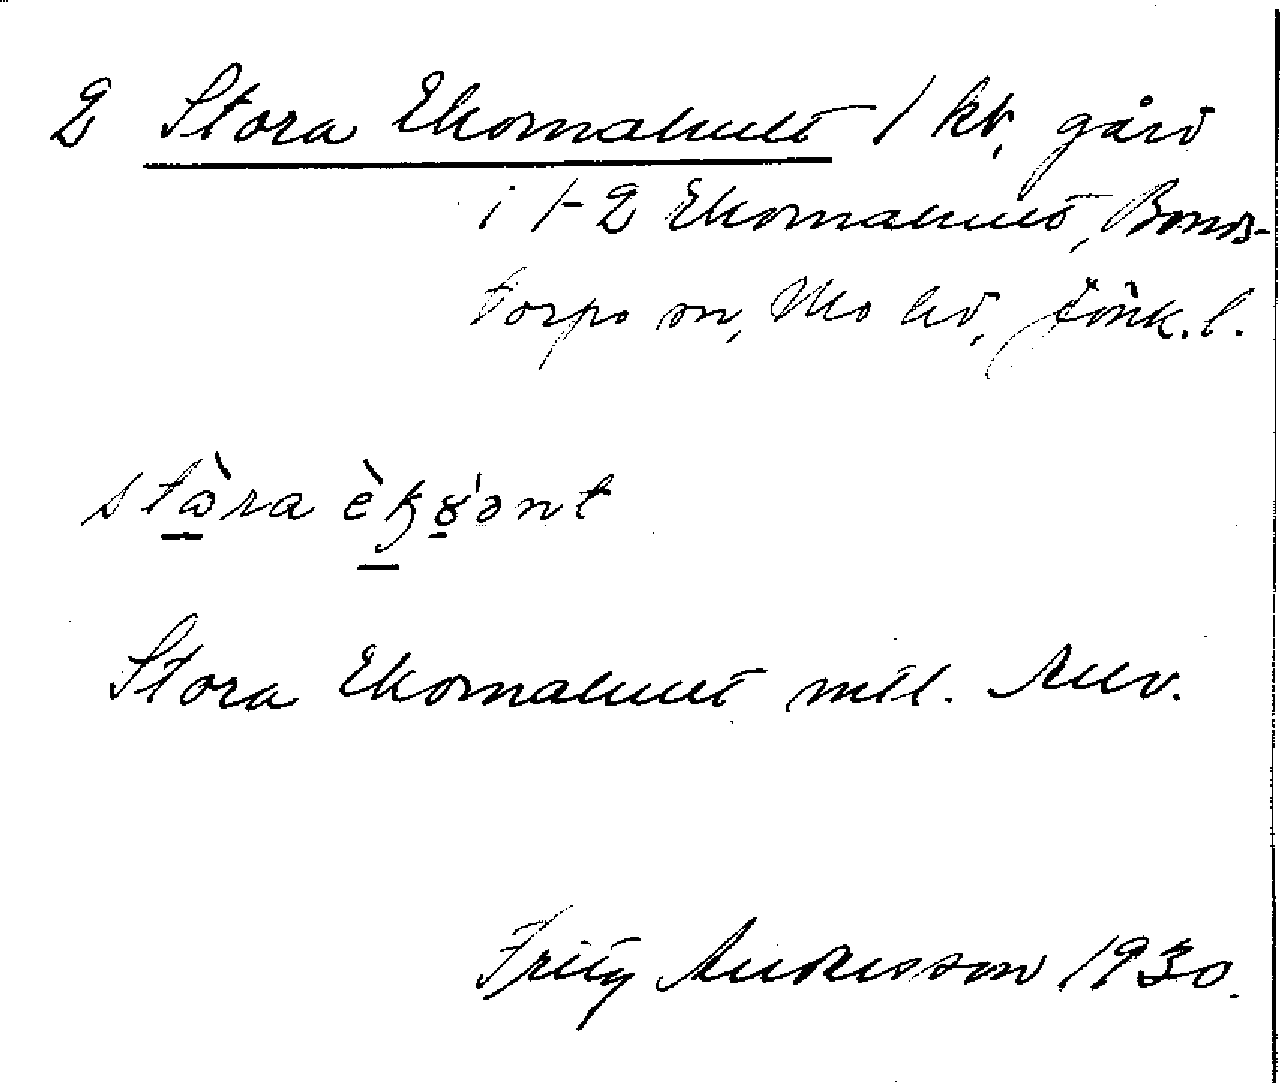 2 Stora Ekornahult 1 kt, gård
i 1-2 Ekornahult, Bonds-
torps sn, Mo hd, Jönk. l.
Stora Ekornahult mtl. Allv.
Fritz Andersson 1930.